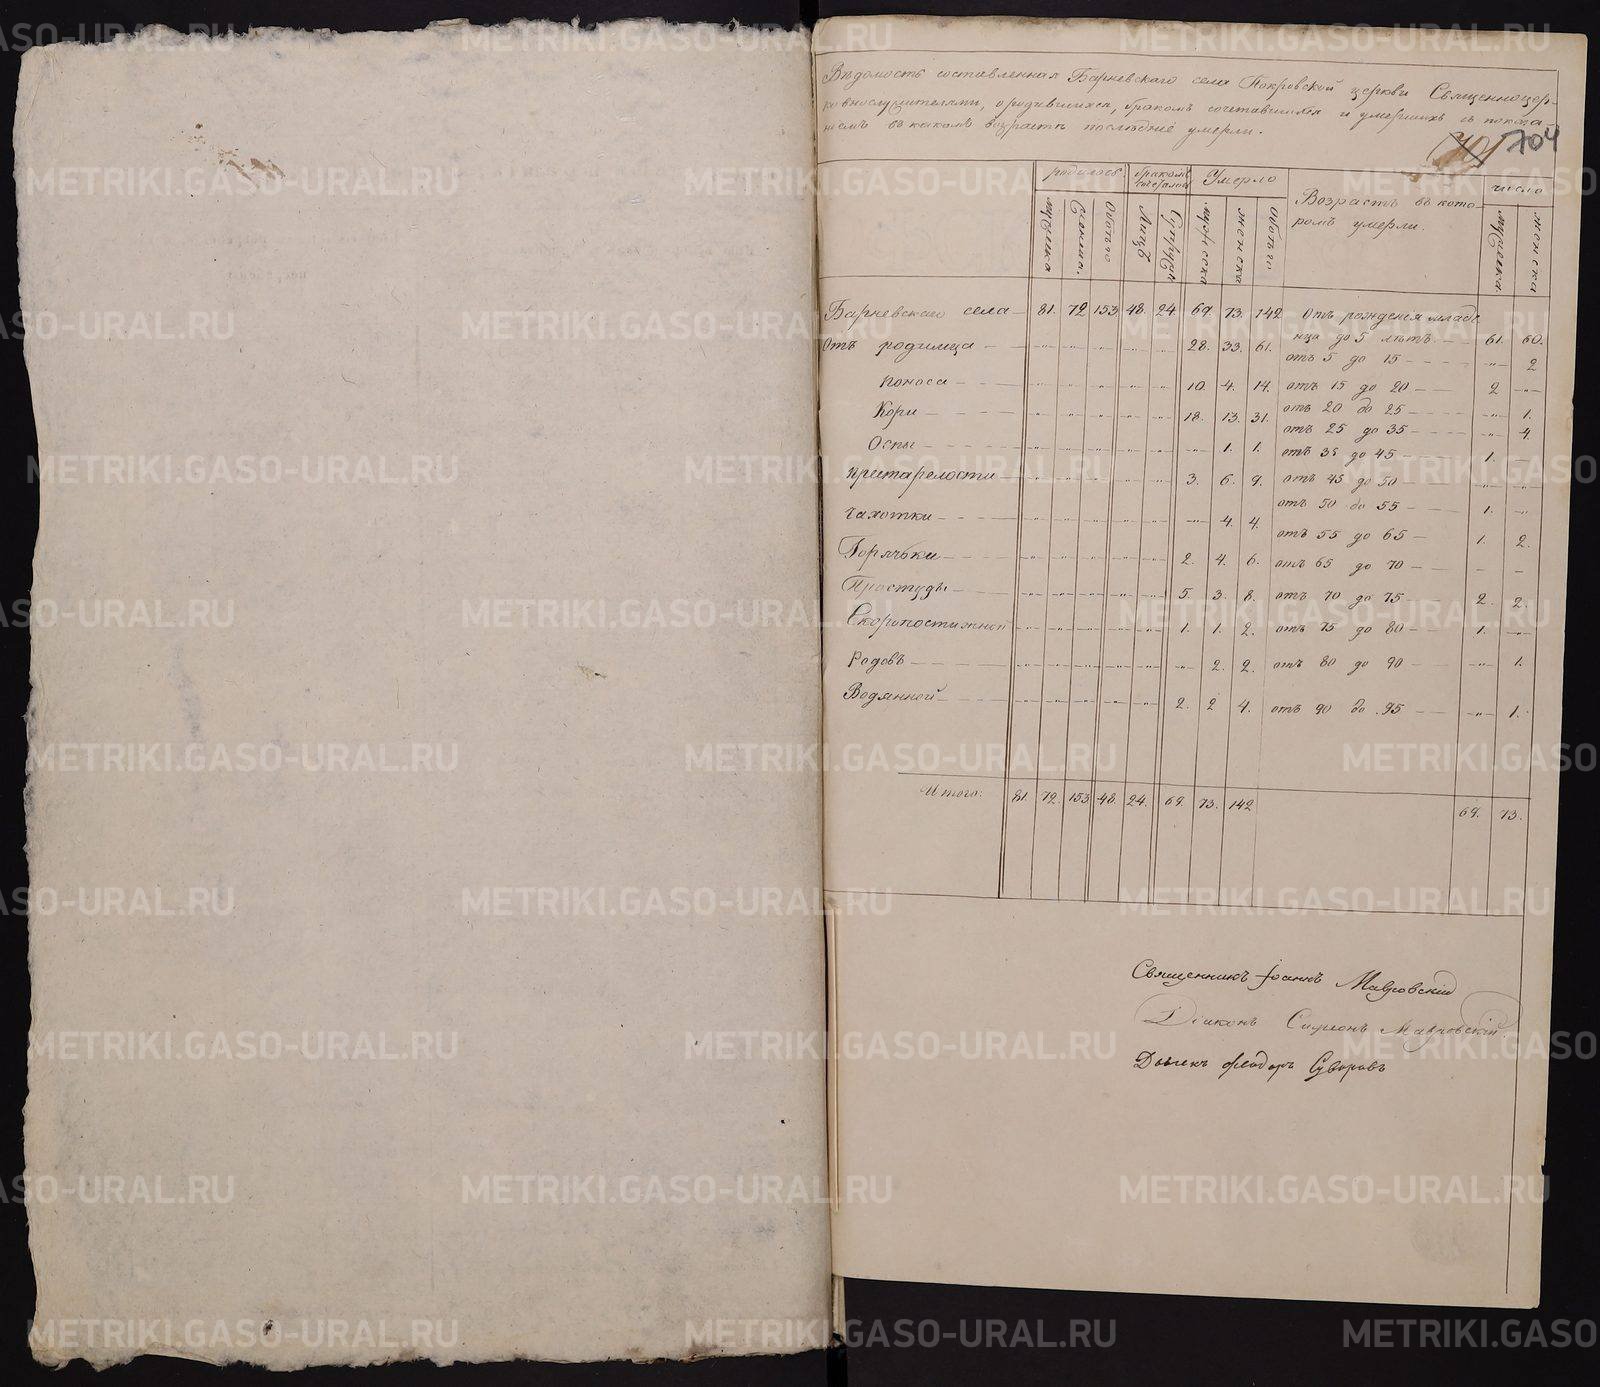 Вѣдомость составленная Барневскаго села Покровской церкви Священноцер-
ковнослужителями, о родившихся, бракомъ сочетавшихся и умершихъ съ показа-
ніемъ въ какомъ возрастѣ последніе умерли.
704
родилось бракомъ Умерло Возрастъ въ кото- число
ромъ умерли.
мужска Женска. Обоего Лицъ Супруж мужеска женска Обоего мужеска женска
Барневскаго села 81. 72 153 48. 24 69. 73. 142 Отъ рожденія младе
нца до 5 лѣтъ 61. 60.
Отъ родимца 28. 33. 61.
отъ 5 до 15 „ 2
поноса 10. 4. 14. отъ 15 до 20 2 „
Кори 18. 13. 31. отъ 20 до 25 „ 1.
отъ 25 до 35 „ 4.
Оспы „ 1. 1. отъ 35 до 45 1. „
престарелости 3. 6. 9. отъ 45 до 50 „ „
отъ 50 до 55 1. „
чахотки „ 4. 4.
отъ 55 до 65 1. 2.
Горячьки 2. 4. 6. отъ 65 до 70 – –
Простуды 5. 3. 8. отъ 70 до 75 2. 2.
Скоропостижной 1. 1. 2. отъ 75 до 80 1. „
Родовъ „ 2. 2. отъ 80 до 90 „ 1.
Водянной 2. 2 4. отъ 90 до 95 „ 1.
Итого: 81. 72. 153 48. 24. 69. 73. 142 69. 73.
Священникъ Іоаннъ Мавровскій
Діаконъ Симеонъ Мавровскій.
Дьячекъ Федоръ Суворовъ
METRIKI.GASO-URAL.RU